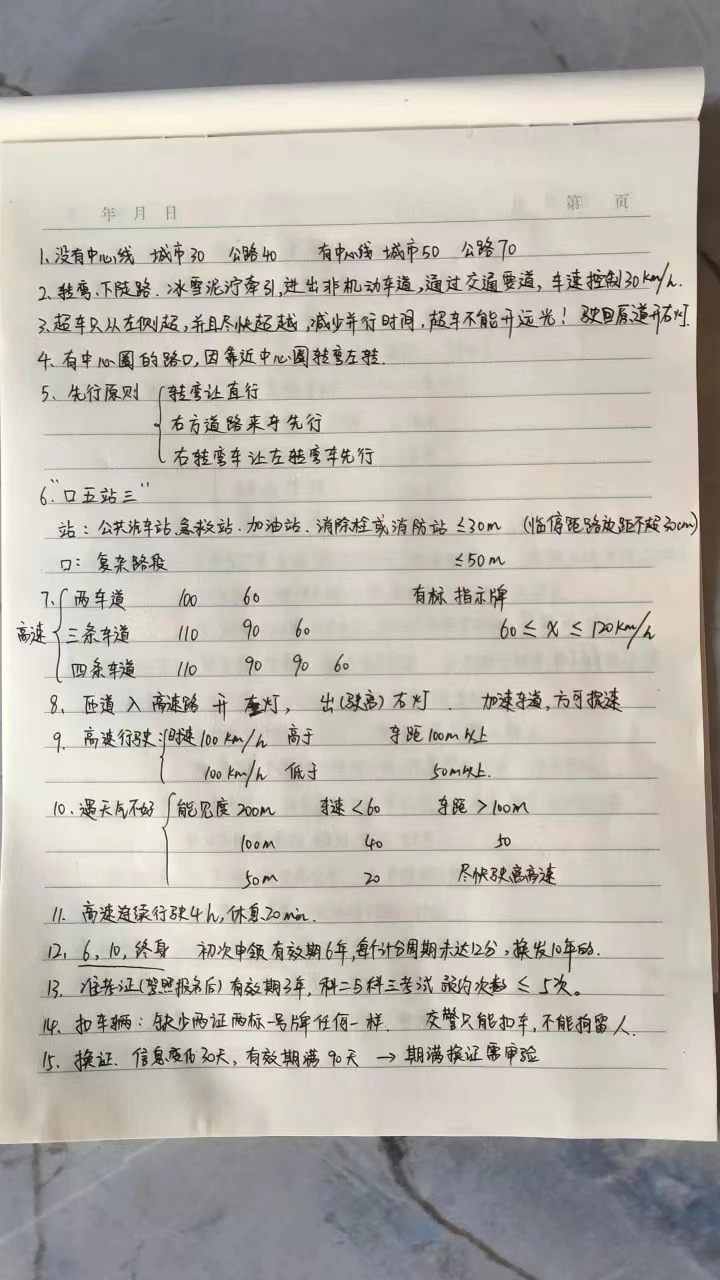 年 月 日 第 页
1. 没有中心线 城市30 公路40 有中心线 城市50 公路70
2. 转弯、下陡路. 冰雪泥泞牵引, 进出非机动车道, 通过交通要道, 车速控制30km/h.
3. 超车只从左侧超, 并且尽快超越, 减少并行时间, 超车不能开远光! 驶回原道开右灯.
4. 有中心圈的路口, 因靠近中心圈转弯左转.
5. 先行原则 转弯让直行
右方道路来车先行
右转弯车让左转弯车先行
6. “口五站三”
站: 公共汽车站. 急救站. 加油站. 消除栓或消防站 ≤30m (临停距路边距不超30cm)
口: 复杂路段 ≤50m
7. 两车道 100 60 有标 指示牌
高速 三条车道 110 90 60 60 ≤ X ≤ 120km/h
四条车道 110 90 90 60
8. 匝道入高速路 开左灯, 出(驶离)右灯. 加速车道, 方可提速
9. 高速行驶: 时速100km/h 高于 车距100m以上
100km/h 低于 50m以上.
10. 遇天气不好 能见度200m 车速<60 车距>100m
100m 40 50
50m 20 尽快驶离高速
11. 高速连续行驶4h, 休息20min.
12. 6, 10, 终身 初次申领有效期6年, 每个计分周期未达12分, 换发10年的.
13. 准考证(驾照报名后)有效期3年, 科二与科三考试 预约次数 ≤ 5次。
14. 扣车辆: 缺少两证两标一号牌任何一样. 交警只能扣车, 不能拘留人.
15. 换证. 信息变化30天, 有效期满90天 → 期满换证需审验